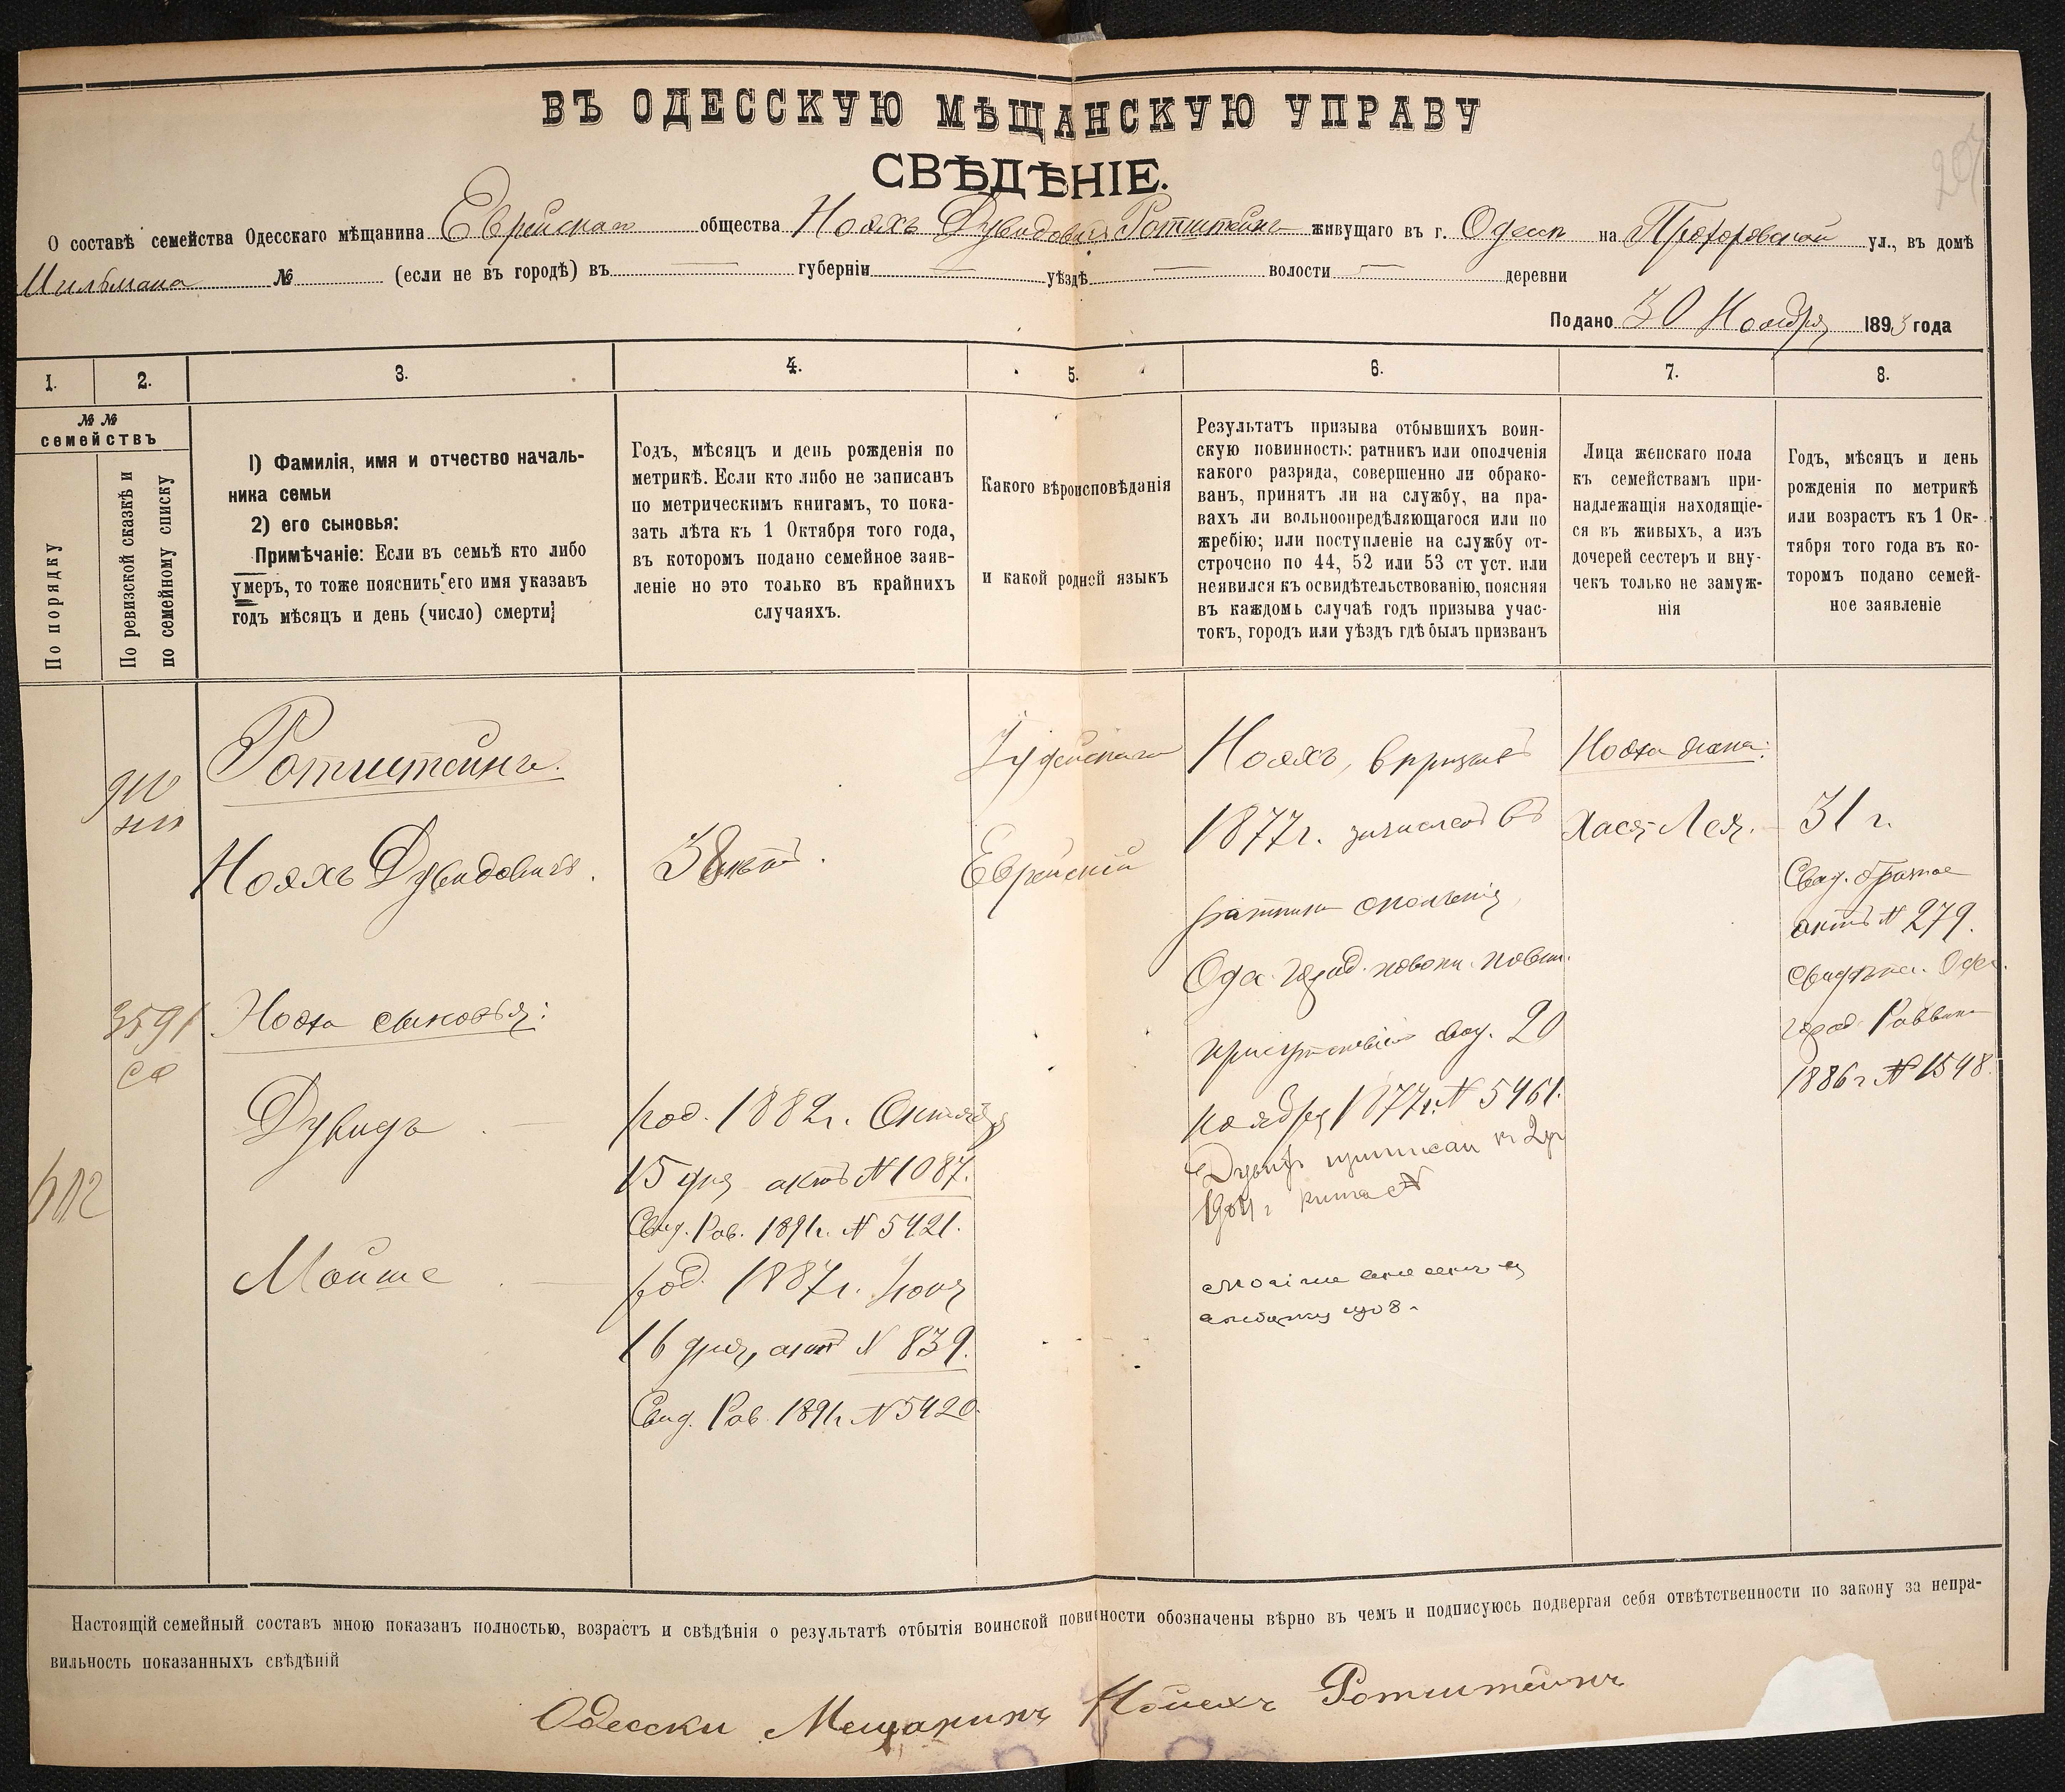 ВЪ ОДЕССКУЮ МѢЩАНСКУЮ УПРАВУ
СВѢДѢНІЕ.
О составѣ семейства Одесскаго мѣщанина Еврейскаго общества Нояхъ Дувидовичъ Ротштейнъ живущаго въ г. Одессѣ на Прохоровской ул., въ домѣ
Мильмана № (если не въ городѣ) въ — губерніи — уѣздѣ — волости — деревни
Подано 30 Ноября 1893 года
1. 2. 3. 4. 5. 6. 7. 8.
№ №
семействъ
По порядку
По ревизской сказкѣ и
по семейному списку
1) Фамилія, имя и отчество началь-
ника семьи
2) его сыновья:
Примѣчаніе: Если въ семьѣ кто либо
умеръ, то тоже пояснить его имя указавъ
годъ мѣсяцъ и день (число) смерти;
Годъ, мѣсяцъ и день рожденія по
метрикѣ. Если кто либо не записанъ
по метрическимъ книгамъ, то пока-
зать лѣта къ 1 Октября того года,
въ котором подано семейное заяв-
леніе но это только въ крайнихъ
случаяхъ.
Какого вѣроисповѣданія
и какой родной языкъ
Результатъ призыва отбывшихъ воин-
скую повинность: ратникъ или ополченія
какого разряда, совершенно ли обрако-
ванъ, принятъ ли на службу, на пра-
вахъ ли вольноопредѣляющагося или по
жребію; или поступленіе на службу от-
строчено по 44, 52 или 53 ст уст. или
неявился къ освидѣтельствованію, поясняя
въ каждомъ случаѣ годъ призыва учас-
токъ, городъ или уѣздъ гдѣ былъ призванъ
Лица женскаго пола
къ семействамъ при-
надлежащія находящіе-
ся въ живыхъ, а изъ
дочерей сестеръ и вну-
чекъ только не замуж-
нія
Годъ, мѣсяцъ и день
рожденія по метрикѣ
или возрастъ къ 1 Ок-
тября того года въ ко-
торомъ подано семей-
ное заявленіе
Ротштейнъ.
Нояхъ Дувидовичъ.
3591
Нояха сыновья:
Дувидъ —
602
Мойше —
38 лѣтъ.
род. 1882г. Октября
15 дня актъ № 1087.
Свид. Рав. 1891г. № 5421.
род. 1887г. Іюня
16 дня, актъ № 839.
Свид. Рав. 1891г. № 5420.
Іудейскаго
Еврейскій
Нояхъ, в призывъ
1877г. зачисленъ въ
ратники ополченія,
Одес. Город. по воин. повин.
присутствіемъ свид. 20
ноября 1877г. № 5461.
Дувидъ приписан к 2 уч
1904г
Мойше
Нояха жена:
Хася-Лея. —
31 г.
Свид. о бракѣ
актъ № 279.
свидѣтел. Одес.
город. Раввина
1886г № 1548.
Настоящій семейный составъ мною показанъ полностью, возрастъ и свѣдѣнія о результатѣ отбытія воинской повинности обозначены вѣрно въ чемъ и подписуюсь подвергая себя отвѣтственности по закону за непра-
вильность показанныхъ свѣдѣній
Одесски Мещанинъ Ноиехъ Ротштейнъ